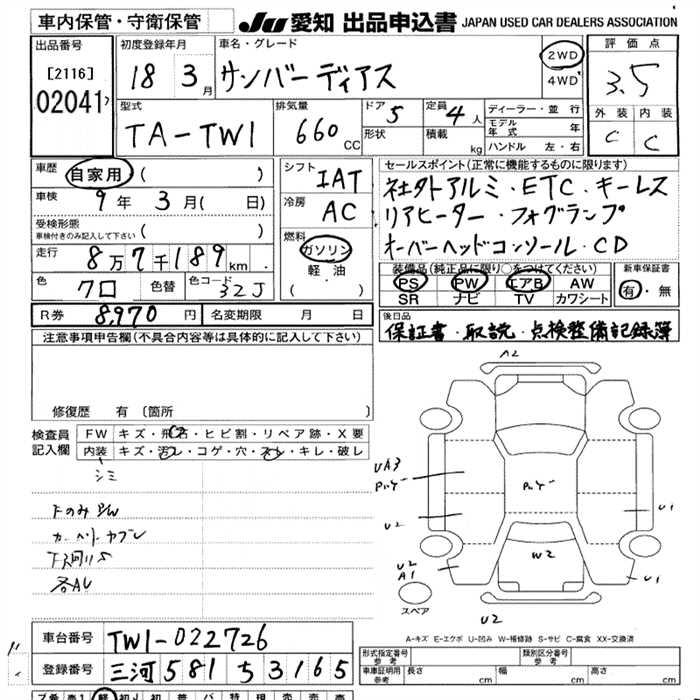 車内保管・守衛保管
JU 愛知 出品申込書 JAPAN USED CAR DEALERS ASSOCIATION
出品番号
[2116]
02041
初度登録年月
18 3月
車名・グレード
サンバーディアス
2WD
4WD
評価点
3.5
外装 内装
C C
型式
TA-TW1
排気量
660 CC
ドア 5
形状
定員 4人
積載 kg
ディーラー・並行
モデル年式 年
ハンドル 左・右
車歴
自家用 ( )
車検
9年 3月 ( 日)
受検形態
車検付きのみ記入して下さい ( )
走行
8万7千189 km
色
クロ
色替
色コード
32J
シフト
IAT
冷房
AC
燃料
ガソリン
軽油
( ・ )
セールスポイント(正常に機能するものに限ります)
社外アルミ・ETC・キーレス
リアヒーター・フォグランプ
オーバーヘッドコンソール・CD
装備品(純正品に限り○をつけてください)
PS PW エアB AW
SR ナビ TV カワシート
新車保証書
有・無
R券 8,970 円
名変期限 月 日
後日品
保証書・取説・点検整備記録簿
注意事項申告欄(不具合内容等は具体的に記入して下さい)
修復歴 有 〔箇所 〕
検査員記入欄
FW キズ・飛石・ヒビ割・リペア跡・X要
内装 キズ・汚レ・コゲ・穴・スレ・キレ・破レ
シミ
下回りS
各AU
A2
UA3
U2
W2
U1
U2
A1
U1
U2
スペア
A-キズ E-エクボ U-凹み W-補修跡 S-サビ C-腐食 XX-交換済
車台番号
TW1-022726
登録番号
三河 581 5 3165
形式指定番号
参考
類別区分番号
参考
車両証明用
参考
長さ cm
幅 cm
高さ cm